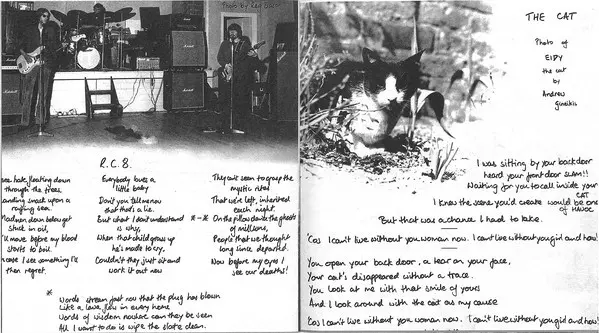 Photo by
Marshall
R.C.8.
hate, floating down
through the trees.
Landing smack upon a
raging sea.
Madmen down below get
stuck in oil,
I'll move before my blood
starts to boil.
I see something I'll
then regret.
Everybody loves a
little baby
Don't you tell me now
that that's a lie.
But what I don't understand
is why,
When that child grows up
he's made to cry.
Couldn't they just sit and
work it out now
They can't seem to grasp the
mystic rites
That we're left, inherited
each night.
*-* On the pillow dance the ghosts
of millions,
People that we thought
long since departed.
Now before my eyes I
see our deaths!!
*
Words stream fast now that the plug has blown
Like a love, flow in every home
Words of wisdom nowhere can they be seen
All I want to do is wipe the slate clean.
THE CAT
Photo of
EIDY
the cat
by
Andrew
I was sitting by your back door
heard your front door slam!!
Waiting for you to call inside your
CAT
I knew the scene you'd create would be one
of HAVOC
But that was a chance I had to take.
'Cos I can't live without you woman now. I can't live without you girl and how!
You open your back door, a tear on your face,
Your cat's disappeared without a trace.
You look at me with that smile of yours
And I look around with the cat as my cause
'Cos I can't live without you woman now. I can't live without you girl and how!